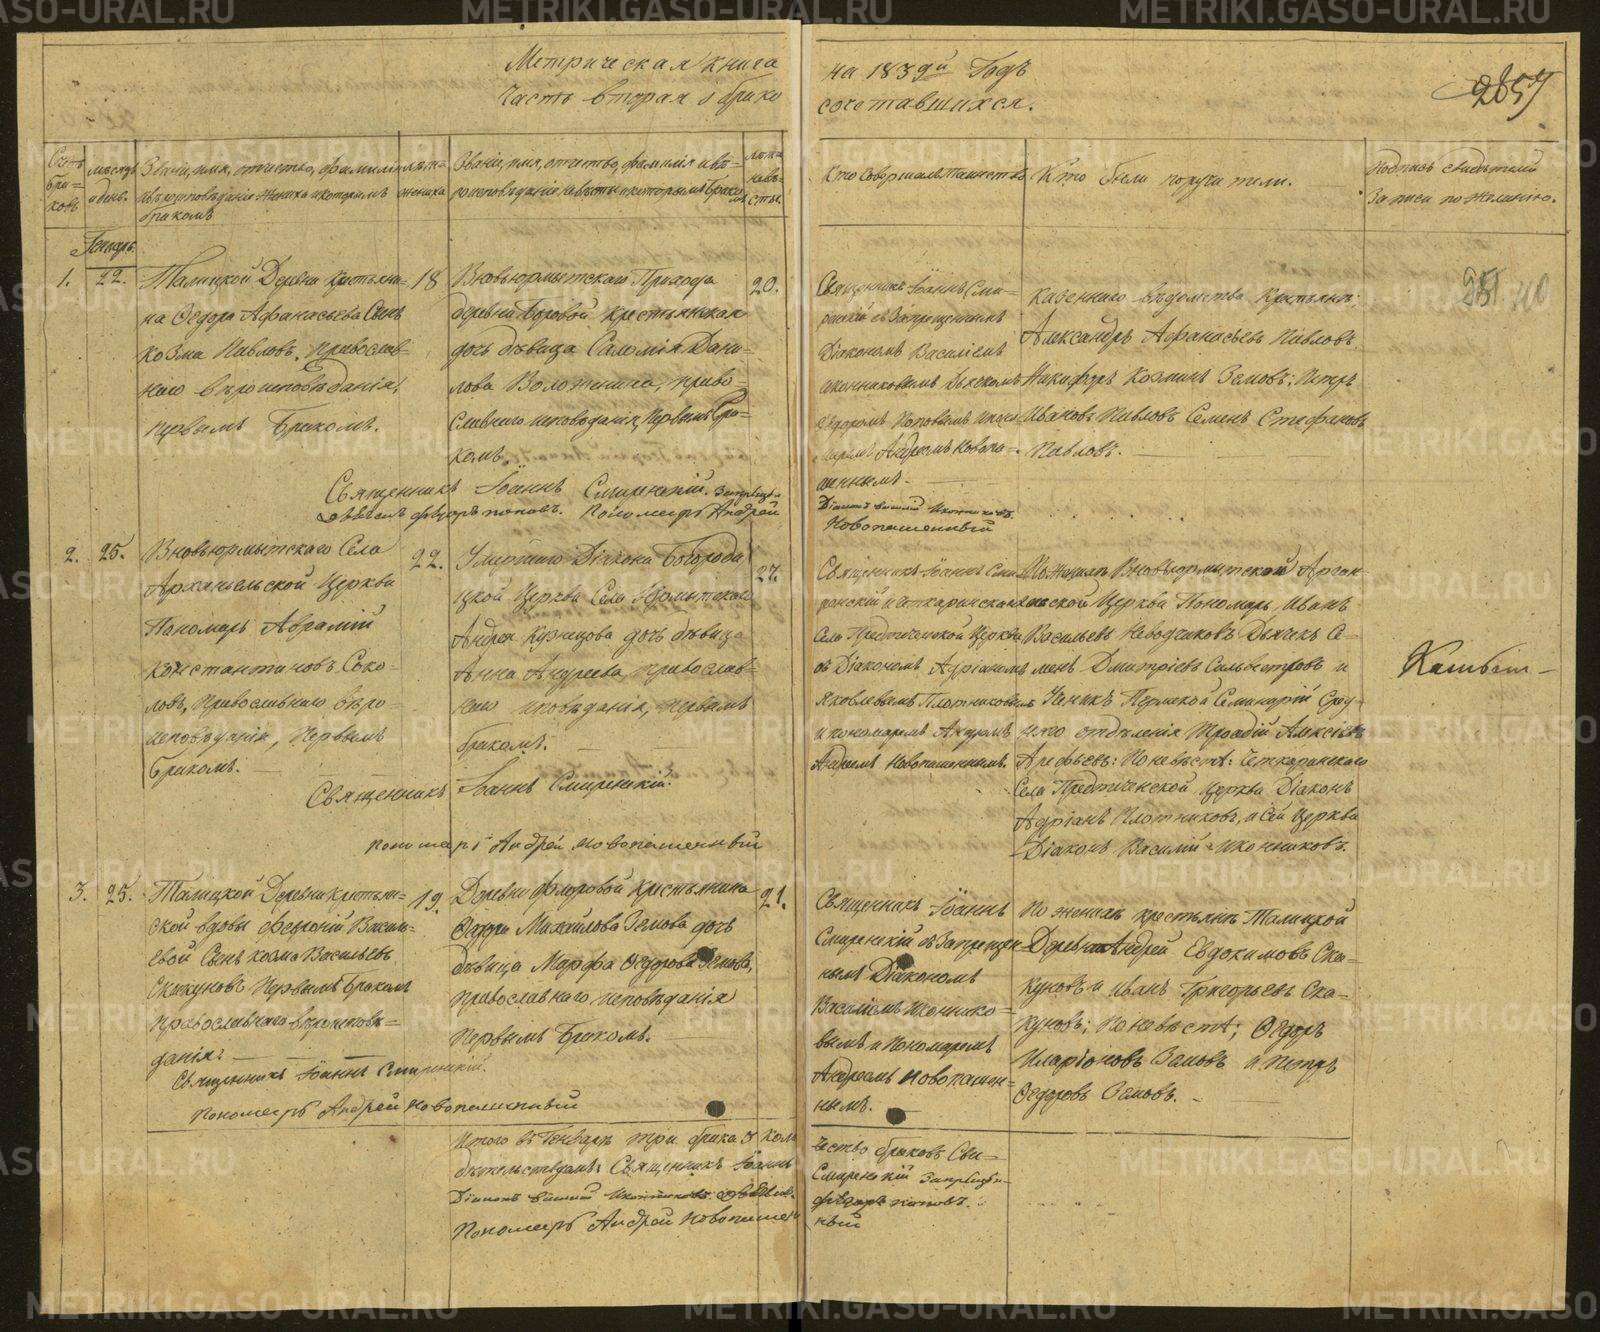 METRIKI.GASO-URAL.RU
Метрическая книга
Часть вторая о брако
на 1839й Годъ
сочетавшихся.
2857
Счетъ бра=ковъ
мѣсяцъ и день.
Званіе, имя, отчество, фамилія
и вѣроисповѣданіе жениха и которымъ
бракомъ
лѣта жениха
Званіе, имя, отчество, фамилія и вѣ=
роисповѣданіе невѣсты и которымъ бракомъ
лѣта невѣсты.
Кто совершалъ таинство
Кто были поручители.
Подпись свидѣтелей
записи по желанію.
Генварь.
1.
22.
Талицкой Деревни крестьяни=
на Ѳедора Афанасьева Сынъ
Козма Павловъ, Православ=
наго вѣроисповѣданія,
первымъ Бракомъ.
18
Вновьюрмытскаго Прихода
деревни Боровой крестьянская
дочь дѣвица Саломія Дани=
лова Воложенина, право=
славнаго исповѣданія, первымъ бра=
комъ.
20.
Священникъ Іоаннъ Сми=
ренскій съ Запрещеннымъ
Діакономъ Василіемъ
Иконниковымъ Дьячкомъ
Ѳедоромъ Поповымъ и поно=
маремъ Андреемъ Новопа=
шеннымъ.
Казеннаго вѣдомства крестьяне:
Александръ Афанасьевъ Павловъ
Никифоръ Козминъ Земовъ; Петръ
Ивановъ Павловъ Семенъ Стефановъ
Павловъ.
Священникъ Іоаннъ Смиренскій.
Ѳедоръ Поповъ. Пономарь Андрей
Новопашенный
2.
25.
Вновьюрмытскаго Села
Архангельской Церкви
Пономарь Авраамій
Константиновъ Соко=
ловъ, Православнаго вѣро=
исповѣданія, Первымъ
Бракомъ.
22.
Умершаго Діакона Богороди
цкой Церкви Села Юрмытскаго
Андрея Кузнецова дочь дѣвица
Анна Андреева, православ=
наго исповѣданія, первымъ
бракомъ.
27.
Священникъ Іоаннъ Сми
ренскій и Четкаринскаго
Села Предтеченской Церкви
съ Діакономъ Адріаномъ
Яковлевымъ Плотниковымъ
и пономаремъ
Андреемъ Новопашеннымъ.
По Женихѣ Вновьюрмытской Архан=
гельской Церкви Пономарь Иванъ
Васильевъ Неводчиковъ Дьячекъ Се=
менъ Дмитріевъ Сильвестровъ и
Ученикъ Пермской Семинаріи Сред=
няго отдѣленія Алексѣевъ
Арефьевъ: По невѣстѣ: Четкаринскаго
Села Предтеченской Церкви Діаконъ
Адріанъ Плотниковъ, и Сей Церкви
Діаконъ Василій Иконниковъ.
Священникъ Іоаннъ Смиренскій.
Пономарь Андрей Новопашенный
3.
25.
Талицкой Деревни крестьян=
ской вдовы Февроніи Василь=
евой Сынъ Козма Васильевъ
Скакуновъ Первымъ Бракомъ
православнаго вѣроисповѣ=
данія.
19.
Деревни Флоровой Крестьянина
Ѳедора Михайлова Земова дочь
дѣвица Марфа Ѳедорова Земова,
православнаго исповѣданія
Первымъ Бракомъ.
21.
Священникъ Іоаннъ
Смиренскій съ Запрещен
нымъ Діакономъ
Василіемъ Иконнико=
вымъ и Пономаремъ
Андреемъ Новопашен=
нымъ.
По женихѣ крестьяне Талицкой
Деревни Андрей Евдокимовъ Ска=
куновъ и Иванъ Григорьевъ Ска=
куновъ; По невѣстѣ; Ѳедоръ
Иларіоновъ Земовъ и Петръ
Ѳедоровъ Земовъ.
Священникъ Іоаннъ Смиренскій.
Пономарь Андрей Новопашенный
Итого въ Генварѣ три брака
Священникъ Іоаннъ
Смиренскій
Діаконъ Василій Иконниковъ
Ѳедоръ Поповъ.
Пономарь Андрей Новопашен
ный